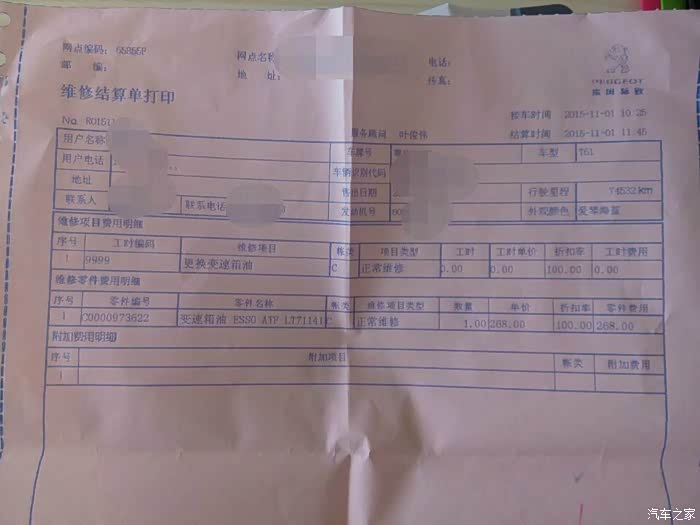 网点编码: 65855P 网点名称 电话:
邮 编: 地 址: 传真:
PEUGEOT
东风标致
维修结算单打印
接车时间 2015-11-01 10:25
No. RO151 服务顾问 叶俊伟 结算时间 2015-11-01 11:45
用户名称 车牌号 车型 T61
用户电话 车辆识别代码
地址 售出日期 行驶里程 74532km
联系人 联系电话 发动机号 外观颜色 爱琴海蓝
维修项目费用明细
序号 工时编码 维修项目 帐类 项目类型 工时 工时单价 折扣率 工时费用
1 9999 更换变速箱油 C 正常维修 0.00 0.00 100.00 0.00
维修零件费用明细
序号 零件编号 零件名称 帐类 维修项目类型 数量 单价 折扣率 零件费用
1 C0000973622 变速箱油 ESSO ATF LT71141 C 正常维修 1.00 268.00 100.00 268.00
附加费用明细
序号 附加项目 帐类 附加费用
1
汽车之家